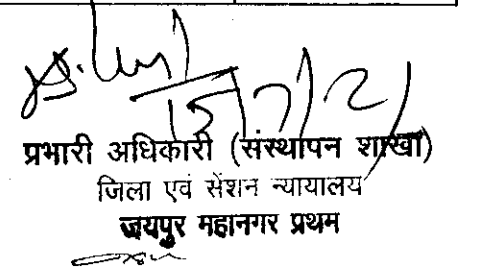 15/7/21
प्रभारी अधिकारी (संस्थापन शाखा)
जिला एवं सेंशन न्यायालय
जयपुर महानगर प्रथम